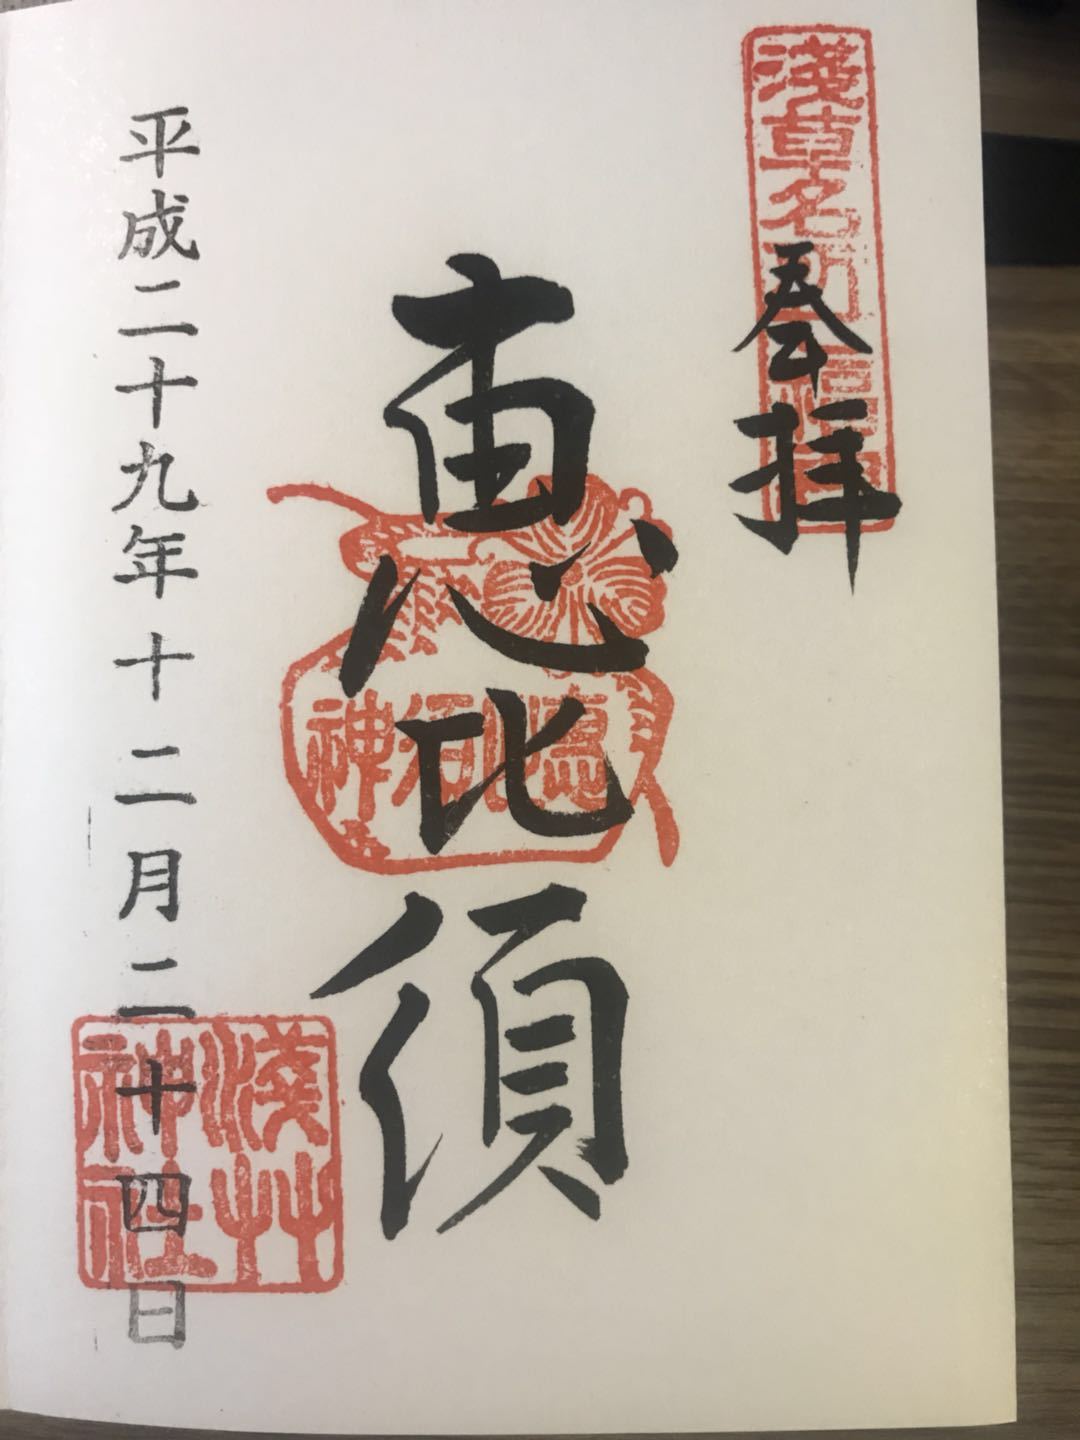 淺草名所七福神
奉拝
恵比須
恵比須神
平成二十九年十二月二十四日
淺草神社